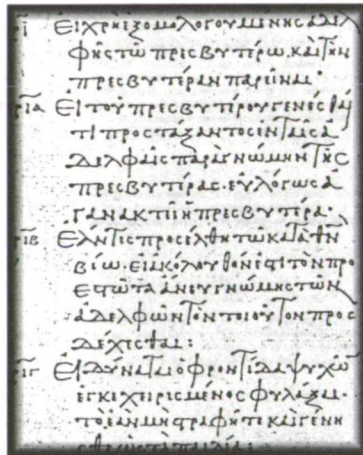 ρι Εἰ χρὴ ἐξομολογουμένης ἀδελ
φῆς τῷ πρεσβυτέρῳ, καὶ τὴν
πρεσβυτέραν παρεῖναι·
ρια Εἰ τοῦ πρεσβυτέρου γενέσθαι
τι προστάξαντος ἐν ταῖς ἀ
δελφαῖς παρὰ γνώμην τῆς
πρεσβυτέρας· εὐλόγως ἀ
γανακτεῖ ἡ πρεσβυτέρα·
ριβ Ἐάν τις προσέλθῃ τῷ κατὰ θν
βίῳ· εἰ ἀκόλουθόν ἐστι τὸν προ
εστῶτα ἄνευ γνώμης τῶν
ἀδελφῶν τὸν τοιοῦτον προσ
δέχεσθαι:
ριγ Εἰ δύναται ὁ φροντίδα ψυχῶν
ἐγκεχειρισμένος φυλάξαι·
τὸ ἐὰν μὴ στραφῆτε καὶ γένη
σθε ὡς τὰ παιδία: